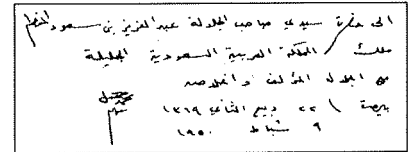 الى حضرة سيدي صاحب الجلالة عبد العزيز بن سعود المعظم
ملك المملكة العربية السعودية الجليلة
من اجلال المؤلف واخلاصه
٢٢ ربيع الثاني ١٣٦٩
٩ شباط ١٩٥٠